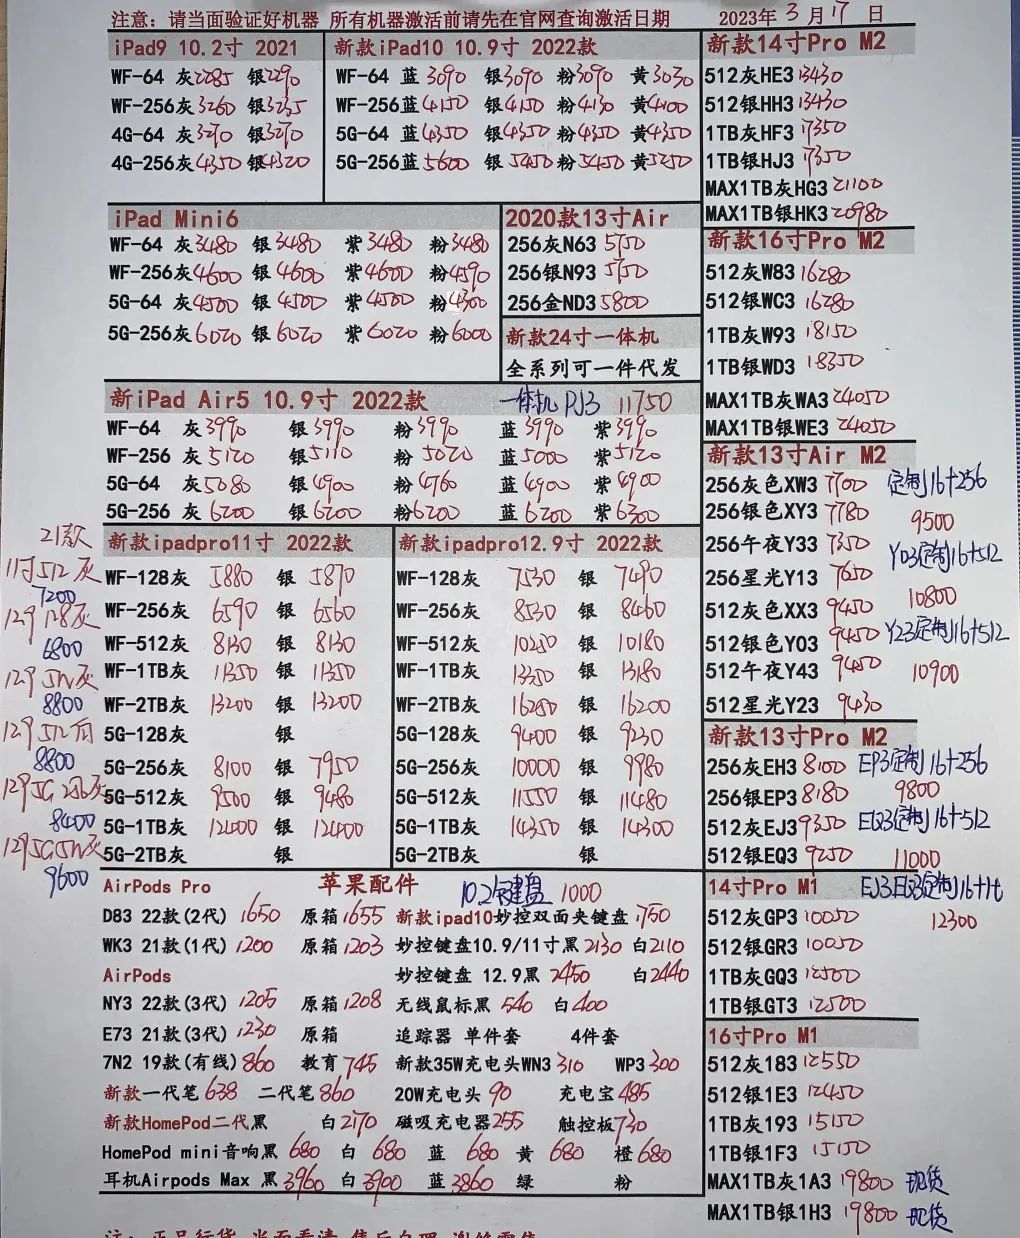 注意: 请当面验证好机器 所有机器激活前请先在官网查询激活日期
2023年 3月17日
iPad9 10.2寸 2021
WF-64 灰2285 银2290
WF-256灰3260 银3235
4G-64 灰3270 银3270
4G-256灰4350 银4320
新款iPad10 10.9寸 2022款
WF-64 蓝3090 银3090 粉3090 黄3030
WF-256蓝4150 银4150 粉4130 黄4100
5G-64 蓝4350 银4350 粉4350 黄4350
5G-256蓝5600 银5450 粉5450 黄5250
iPad Mini6
WF-64 灰3480 银3480 紫3480 粉3480
WF-256灰4600 银4600 紫4600 粉4590
5G-64 灰4500 银4500 紫4500 粉4300
5G-256灰6020 银6020 紫6020 粉6000
2020款13寸Air
256灰N63 5750
256银N93 5750
256金ND3 5800
新款24寸一体机
全系列可一件代发
新iPad Air5 10.9寸 2022款 一体机 PJ3 11750
WF-64 灰3990 银3990 粉3990 蓝3990 紫3990
WF-256 灰5120 银5110 粉5020 蓝5000 紫5120
5G-64 灰5080 银4900 粉4760 蓝4900 紫4900
5G-256 灰6200 银6200 粉6200 蓝6200 紫6300
21款
11寸512灰
7200
129 128灰
6800
129 512灰
8800
129 512
8800
129 5G 256灰
8400
129 5G 512灰
9600
新款ipadpro11寸 2022款
WF-128灰 5880 银 5870
WF-256灰 6590 银 6560
WF-512灰 8130 银 8130
WF-1TB灰 11350 银 11350
WF-2TB灰 13200 银 13200
5G-128灰 银
5G-256灰 8100 银 7950
5G-512灰 9500 银 9480
5G-1TB灰 12400 银 12400
5G-2TB灰 银
新款ipadpro12.9寸 2022款
WF-128灰 7530 银 7490
WF-256灰 8530 银 8460
WF-512灰 10250 银 10180
WF-1TB灰 13250 银 13180
WF-2TB灰 16250 银 16200
5G-128灰 9400 银 9230
5G-256灰 10000 银 9980
5G-512灰 11550 银 11480
5G-1TB灰 14350 银 14300
5G-2TB灰 银
AirPods Pro 苹果配件 10.2键盘 1000
D83 22款(2代) 1650 原箱1655 新款ipad10妙控双面夹键盘1750
WK3 21款(1代) 1200 原箱1203 妙控键盘10.9/11寸黑2130 白2110
AirPods 妙控键盘 12.9黑 2450 白2440
NY3 22款(3代) 1205 原箱1208 无线鼠标黑 540 白400
E73 21款(3代) 1230 原箱 追踪器 单件套 4件套
7N2 19款(有线)860 教育745 新款35W充电头WN3 310 WP3 300
新款一代笔638 二代笔860 20W充电头 90 充电宝485
新款HomePod二代黑 白2170 磁吸充电器255 触控板730
HomePod mini音响黑 680 白 680 蓝 680 黄 680 橙680
耳机Airpods Max 黑3960 白3900 蓝3860 绿 粉
新款14寸Pro M2
512灰HE3 13430
512银HH3 13430
1TB灰HF3 17350
1TB银HJ3 17350
MAX1TB灰HG3 21100
MAX1TB银HK3 20980
新款16寸Pro M2
512灰W83 16280
512银WC3 16280
1TB灰W93 18150
1TB银WD3 18350
MAX1TB灰WA3 24050
MAX1TB银WE3 24050
新款13寸Air M2
256灰色XW3 7700 定制16+256
256银色XY3 7780 9500
256午夜Y33 7350 Y03定制16+512
256星光Y13 7650 10800
512灰色XX3 9450
512银色Y03 9450 Y23定制16+512
512午夜Y43 9450 10900
512星光Y23 9430
新款13寸Pro M2
256灰EH3 8100 EP3定制16+256
256银EP3 8180 9800
512灰EJ3 9350 EQ3定制16+512
512银EQ3 9250 11000
14寸Pro M1 EJ3EQ3定制16+1t
512灰GP3 10050 12300
512银GR3 10050
1TB灰GQ3 12500
1TB银GT3 12500
16寸Pro M1
512灰183 12550
512银1E3 12450
1TB灰193 15150
1TB银1F3 15150
MAX1TB灰1A3 19800 现货
MAX1TB银1H3 19800 现货